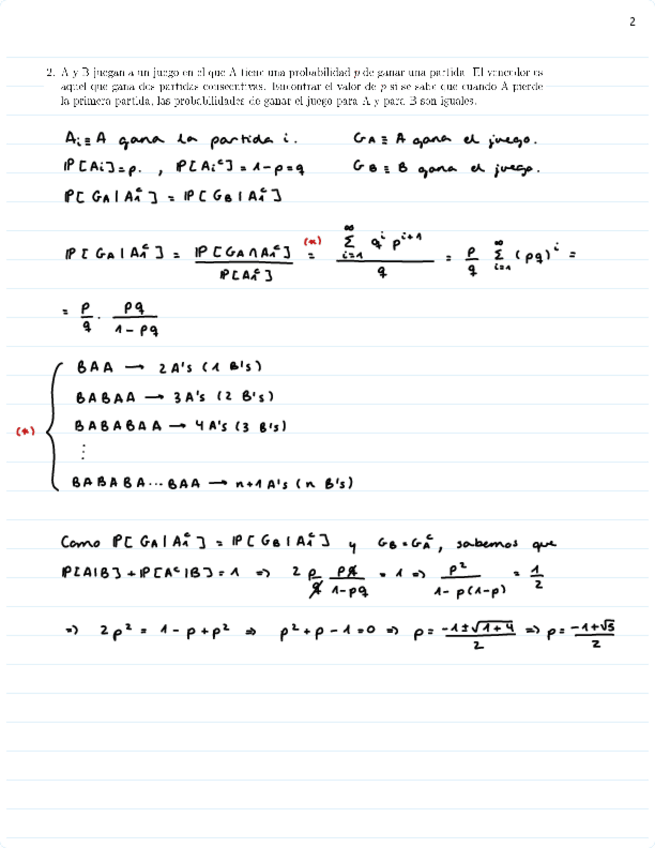 2
2. A y B juegan a un juego en el que A tiene una probabilidad p de ganar una partida. El vencedor es
aquel que gana dos partidas consecutivas. Encontrar el valor de p si se sabe que cuando A pierde
la primera partida, las probabilidades de ganar el juego para A y para B son iguales.
Ai ≡ A gana la partida i. GA ≡ A gana el juego.
IP[Ai]=p. , IP[Ai^c]=1-p=q GB ≡ B gana el juego.
IP[GA|A1^c] = IP[GB|A1^c]
IP[GA|A1^c] = IP[GA∩A1^c] / IP[A1^c] (*)= (∞ Σ i=1 q^i p^(i+1)) / q = p/q ∞ Σ i=1 (pq)^i =
= p/q · pq/(1-pq)
BAA → 2A's (1 B's)
BABAA → 3A's (2 B's)
(*) BABABAA → 4A's (3 B's)
⋮
BABABA...BAA → n+1 A's (n B's)
Como IP[GA|A1^c] = IP[GB|A1^c] y GB=GA^c, sabemos que
IP[A|B]+IP[A^c|B]=1 => 2 p/q pq/(1-pq) = 1 => p²/(1-p(1-p)) = 1/2
=> 2p² = 1-p+p² => p²+p-1=0 => p= (-1±√(1+4))/2 => p= (-1+√5)/2